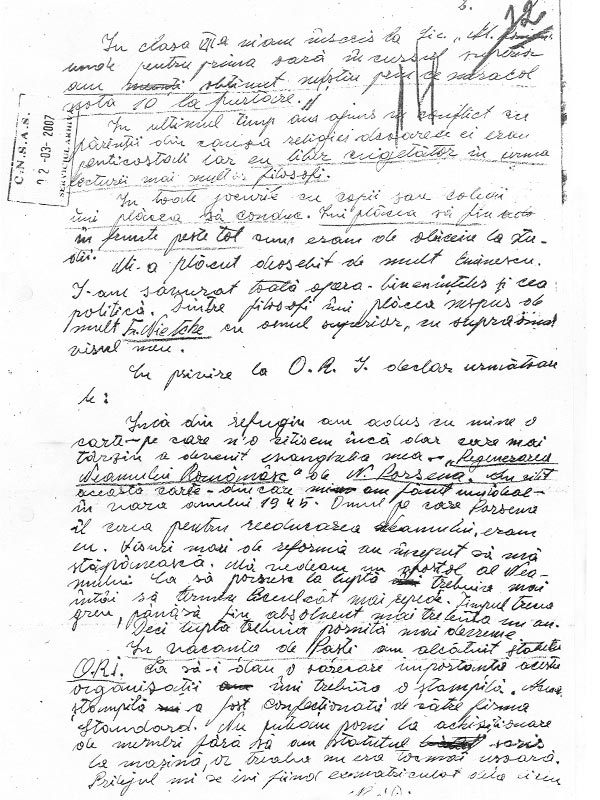 12
C.N.S.A.S.
02-03-2007
SERVICIUL ARHIVA
In clasa III a m'am înscris la Lic. „M.
unde pentru prima oară în cursul superior
am obtinut nustiu prin ce miracol
nota 10 la purtare."
In ultimul timp am ajuns in conflict cu
părintii din cauza religiei deoarece ei erau
penticostali iar eu liber cugetător în urma
lecturii mai multor filosofi.
In toate jocurile cu copii sau colegii
îmi plăcea să conduc. Imi plăcea să fiu
în frunte peste tot cum eram de obiceiu la stu-
dii.
Mi-a plăcut deosebit de mult Eminescu.
I-am savurat toată opera - bineninteles si cea
politică. Dintre filosofi îmi plăcea nespus de
mult Fr. Nietche cu omul superior, cu supraomul
visul meu.
In privire la O. R. I. declar următoare
le:
Incă din refugiu am adus cu mine o
carte - pe care n'o citisem încă dar care mai
târziu a devenit evanghelia mea - „Regenerarea
Neamului Românesc" de N. Porsena. Am citit
această carte - din care am făcut un ideal -
în vara anului 1945. Omul pe care Porsena
îl cerea pentru reeducarea Neamului, eram
eu. Visuri mari de reformă au început să mă
stăpânească. Mă vedeam un apostol al Nea-
mului. Ca să pornesc la luptă trebuia mai
întâi să termin liceul cât mai repede. Timpul trecea
greu, până să fiu absolvent mai trebuia un an.
Deci lupta trebuia pornită mai devreme.
In vacanta de Pasti am alcătuit statutul
O.R.I. Ca să-i dau o oarecare importantă acestei
organisatii îmi trebuia o stampilă.
stampilă a fost confectionată de către firma
Standard. Nu puteam porni la achizitionare
de membri fără să am statutul scris
la masină, or treaba nu era tocmai usoară.
Prilejul mi se ivi fiind exmatriculat dela liceu